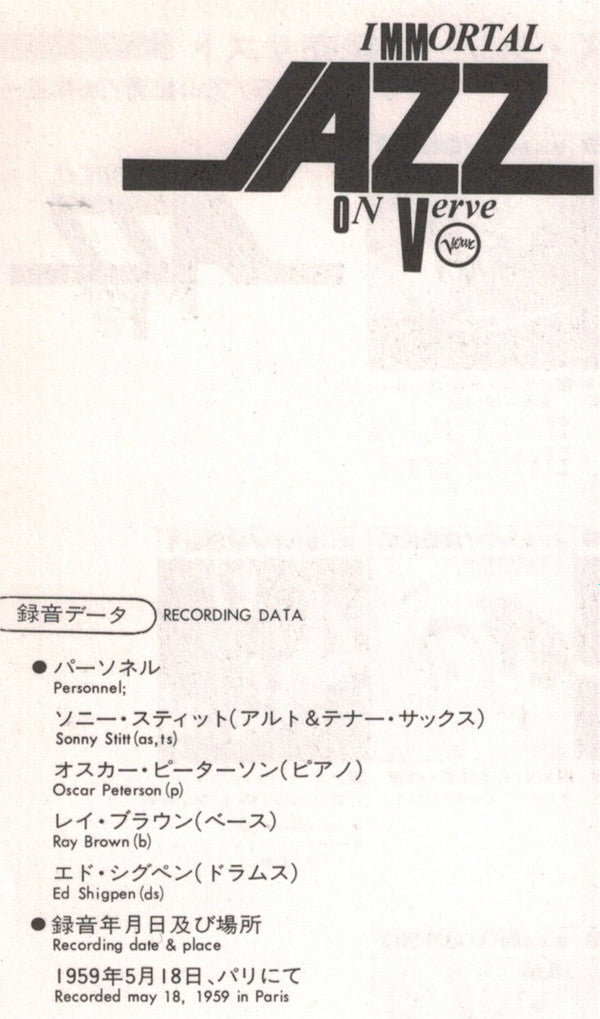 IMMORTAL
JAZZ
ON Verve
Verve
録音データ RECORDING DATA
●パーソネル
Personnel;
ソニー・スティット(アルト&テナー・サックス)
Sonny Stitt(as,ts)
オスカー・ピーターソン(ピアノ)
Oscar Peterson(p)
レイ・ブラウン(ベース)
Ray Brown(b)
エド・シグペン(ドラムス)
Ed Shigpen(ds)
●録音年月日及び場所
Recording date & place
1959年5月18日、パリにて
Recorded may 18, 1959 in Paris